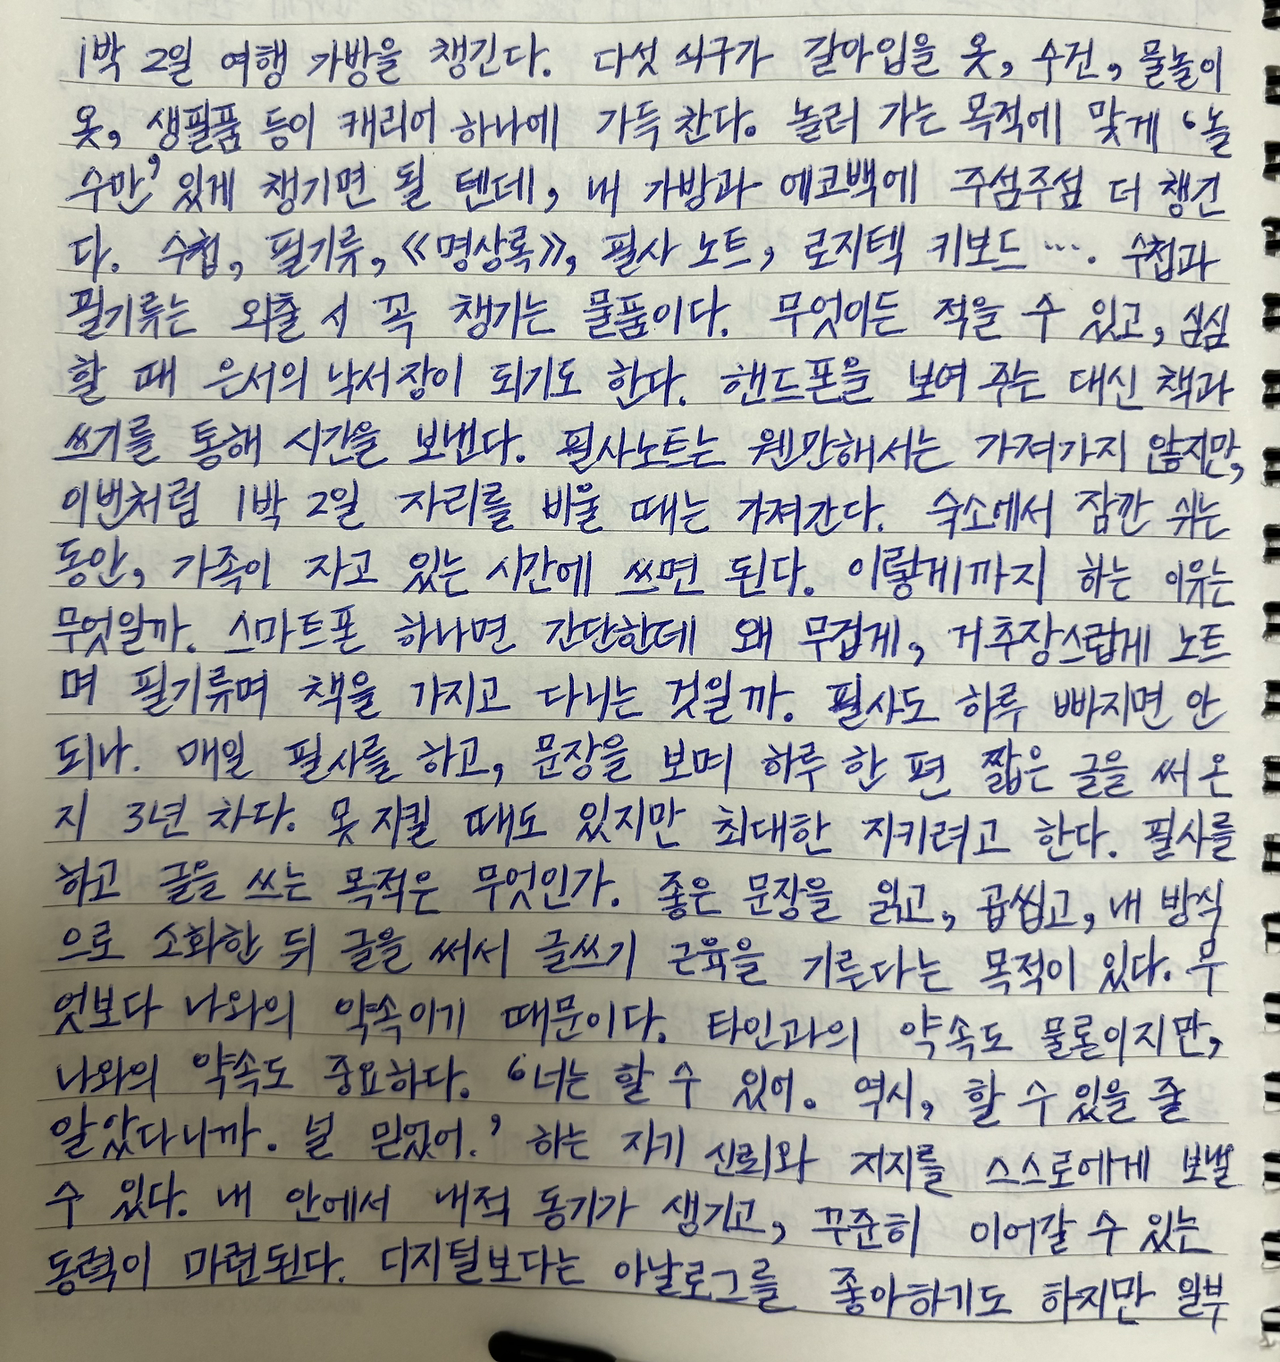 1박 2일 여행 가방을 챙긴다. 다섯 식구가 갈아입을 옷, 수건, 물놀이
옷, 생필품 등이 캐리어 하나에 가득 찬다. 놀러 가는 목적에 맞게 ‘놀
수만’ 있게 챙기면 될 텐데, 내 가방과 에코백에 주섬주섬 더 챙긴
다. 수첩, 필기류, 《명상록》, 필사 노트, 로지텍 키보드 …. 수첩과
필기류는 외출 시 꼭 챙기는 물품이다. 무엇이든 적을 수 있고, 심심
할 때 은서의 낙서장이 되기도 한다. 핸드폰을 보여 주는 대신 책과
쓰기를 통해 시간을 보낸다. 필사노트는 웬만해서는 가져가지 않지만,
이번처럼 1박 2일 자리를 비울 때는 가져간다. 숙소에서 잠깐 쉬는
동안, 가족이 자고 있는 시간에 쓰면 된다. 이렇게까지 하는 이유는
무엇일까. 스마트폰 하나면 간단한데 왜 무겁게, 거추장스럽게 노트
며 필기류며 책을 가지고 다니는 것일까. 필사도 하루 빠지면 안
되나. 매일 필사를 하고, 문장을 보며 하루 한 편 짧은 글을 써 온
지 3년 차다. 못 지킬 때도 있지만 최대한 지키려고 한다. 필사를
하고 글을 쓰는 목적은 무엇인가. 좋은 문장을 읽고, 곱씹고, 내 방식
으로 소화한 뒤 글을 써서 글쓰기 근육을 기른다는 목적이 있다. 무
엇보다 나와의 약속이기 때문이다. 타인과의 약속도 물론이지만,
나와의 약속도 중요하다. ‘너는 할 수 있어. 역시, 할 수 있을 줄
알았다니까. 널 믿었어.’ 하는 자기 신뢰와 지지를 스스로에게 보낼
수 있다. 내 안에서 내적 동기가 생기고, 꾸준히 이어갈 수 있는
동력이 마련된다. 디지털보다는 아날로그를 좋아하기도 하지만 일부